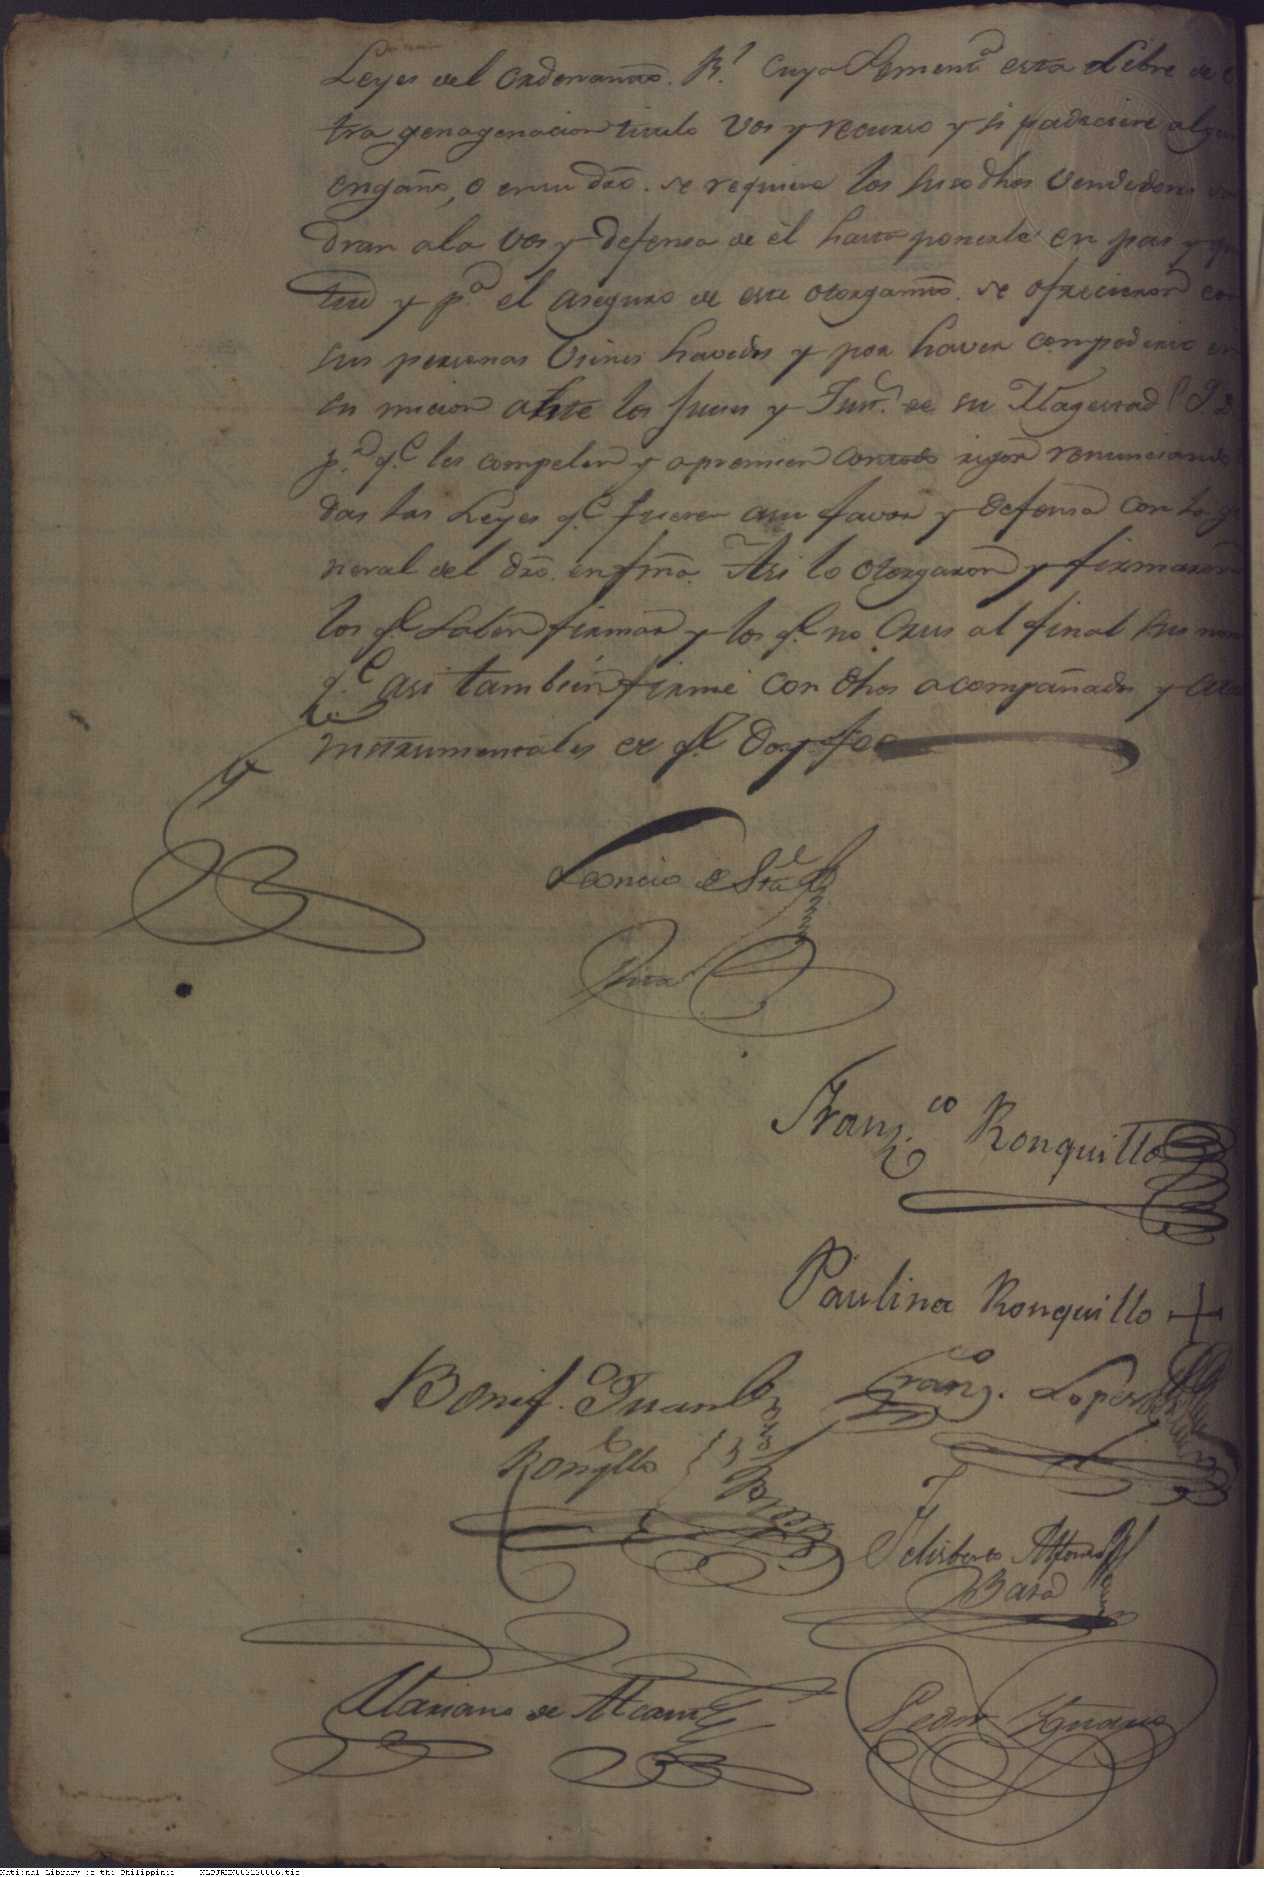 Leyes del Ordenamto. Rl. cuya Sementa. esta libre de
tra genagenacion titulo Vos y recurso y si padeciere algun
engaño, o en su dro. se requiera los susodhos Vendedores
dran ala Vos y defensa de el hasta ponerle en pas y
tud y pa. el aseguro de este otorgamto. se ofrecieron con
sus personas Vienes havidos y por haver
su micion ante los Jueces y Jus. de su Magestad
pa. qe. les compelen y apremien contodo rigor renunciando
das las Leyes qe. fueren asu favor y defensa con la ge
neral del dro. en fma. Asi lo otorgaron y firmaron
los qe. saben firmar y los qe. no Crus al final sus nom
qe. asi tambien firmé con dhos acompañados y
instrumentales de qe. Doy fee
Leoncio de Sta.
Franco. Ronquillo
Paulina Ronquillo +
Bonif. Juan
Ronqllo
Franco. Lopes
Felisberto Alfonso
Basa
Mariano de
Pedro Ygnacio
National Library of the Philippines